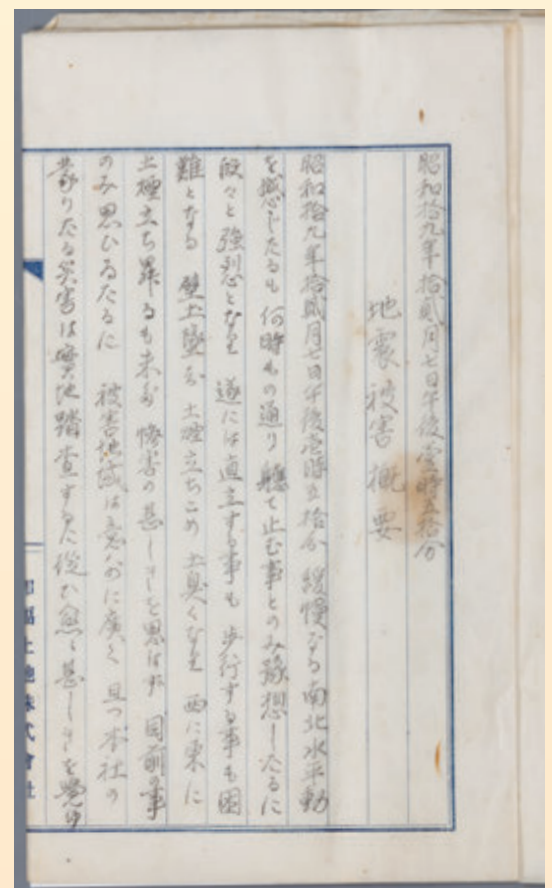 昭和拾九年拾貳月七日午後壹時五拾分
地震被害概要
昭和拾九年拾貳月七日午後壹時五拾分 緩慢なる南北水平動
を感じたるも 何時もの通り 軈て止む事とのみ豫想したるに
段々と強烈となり 遂には直立する事も 歩行する事も困
難となる 壁土墜ち 土煙立ちこめ 土臭くなり 西に東に
土煙立ち昇るも未だ 惨害の甚しきを思はず 目前の事
のみ思ひゐたるに 被害地域は意外に廣く 且つ本社の
蒙りたる災害は實地踏査するに從ひ愈々甚しきを覺ゆ
土地株式會社